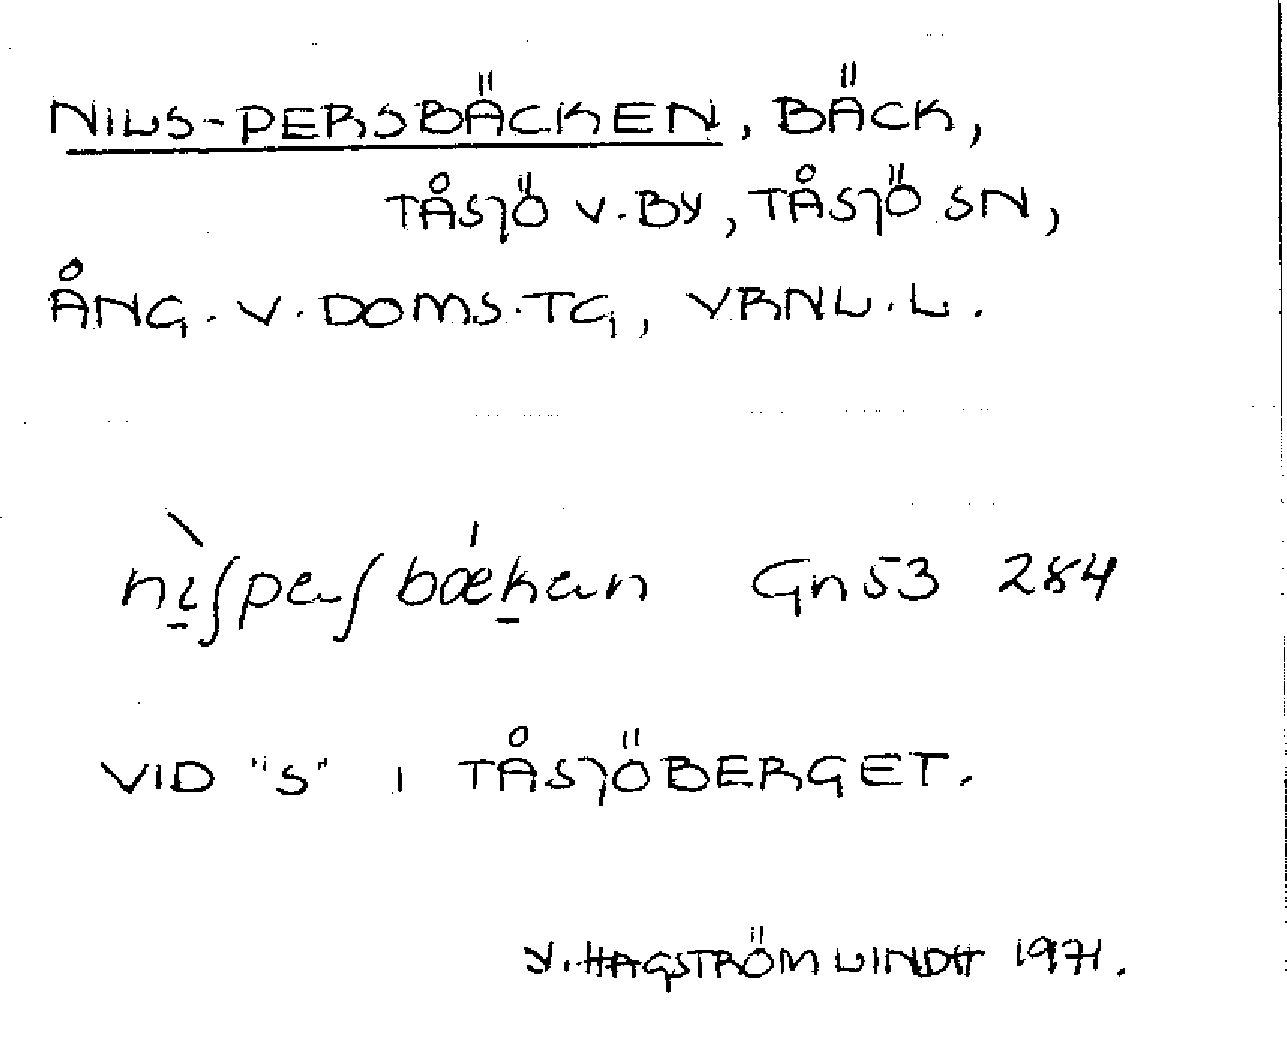 NILS-PERSBÄCKEN, BÄCK,
TÅSJÖ V. BY, TÅSJÖ SN,
ÅNG. V. DOMS. TG, VRNL. L.
nìʃpeʃbækan Gn53 284
VID "S" I TÅSJÖBERGET.
Y. HAGSTRÖM LINDH 1971.